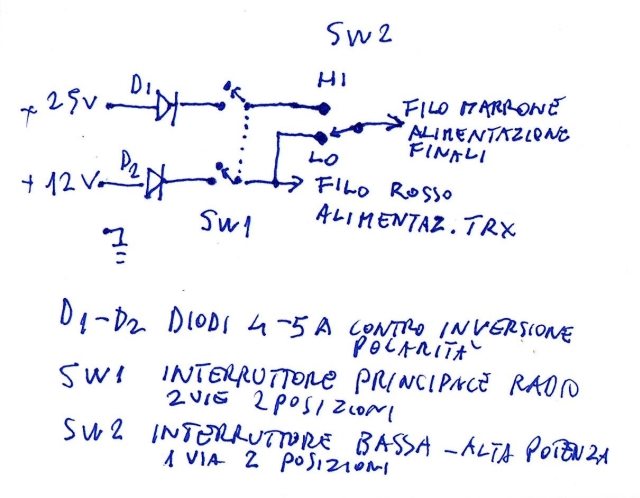 SW2
HI
D1
+ 25V
FILO MARRONE
ALIMENTAZIONE
FINALI
LO
D2
+ 12V
FILO ROSSO
ALIMENTAZ. TRX
SW1
D1-D2 DIODI 4-5A CONTRO INVERSIONE
POLARITA'
SW1 INTERRUTTORE PRINCIPALE RADIO
2 VIE 2 POSIZIONI
SW2 INTERRUTTORE BASSA - ALTA POTENZA
1 VIA 2 POSIZIONI